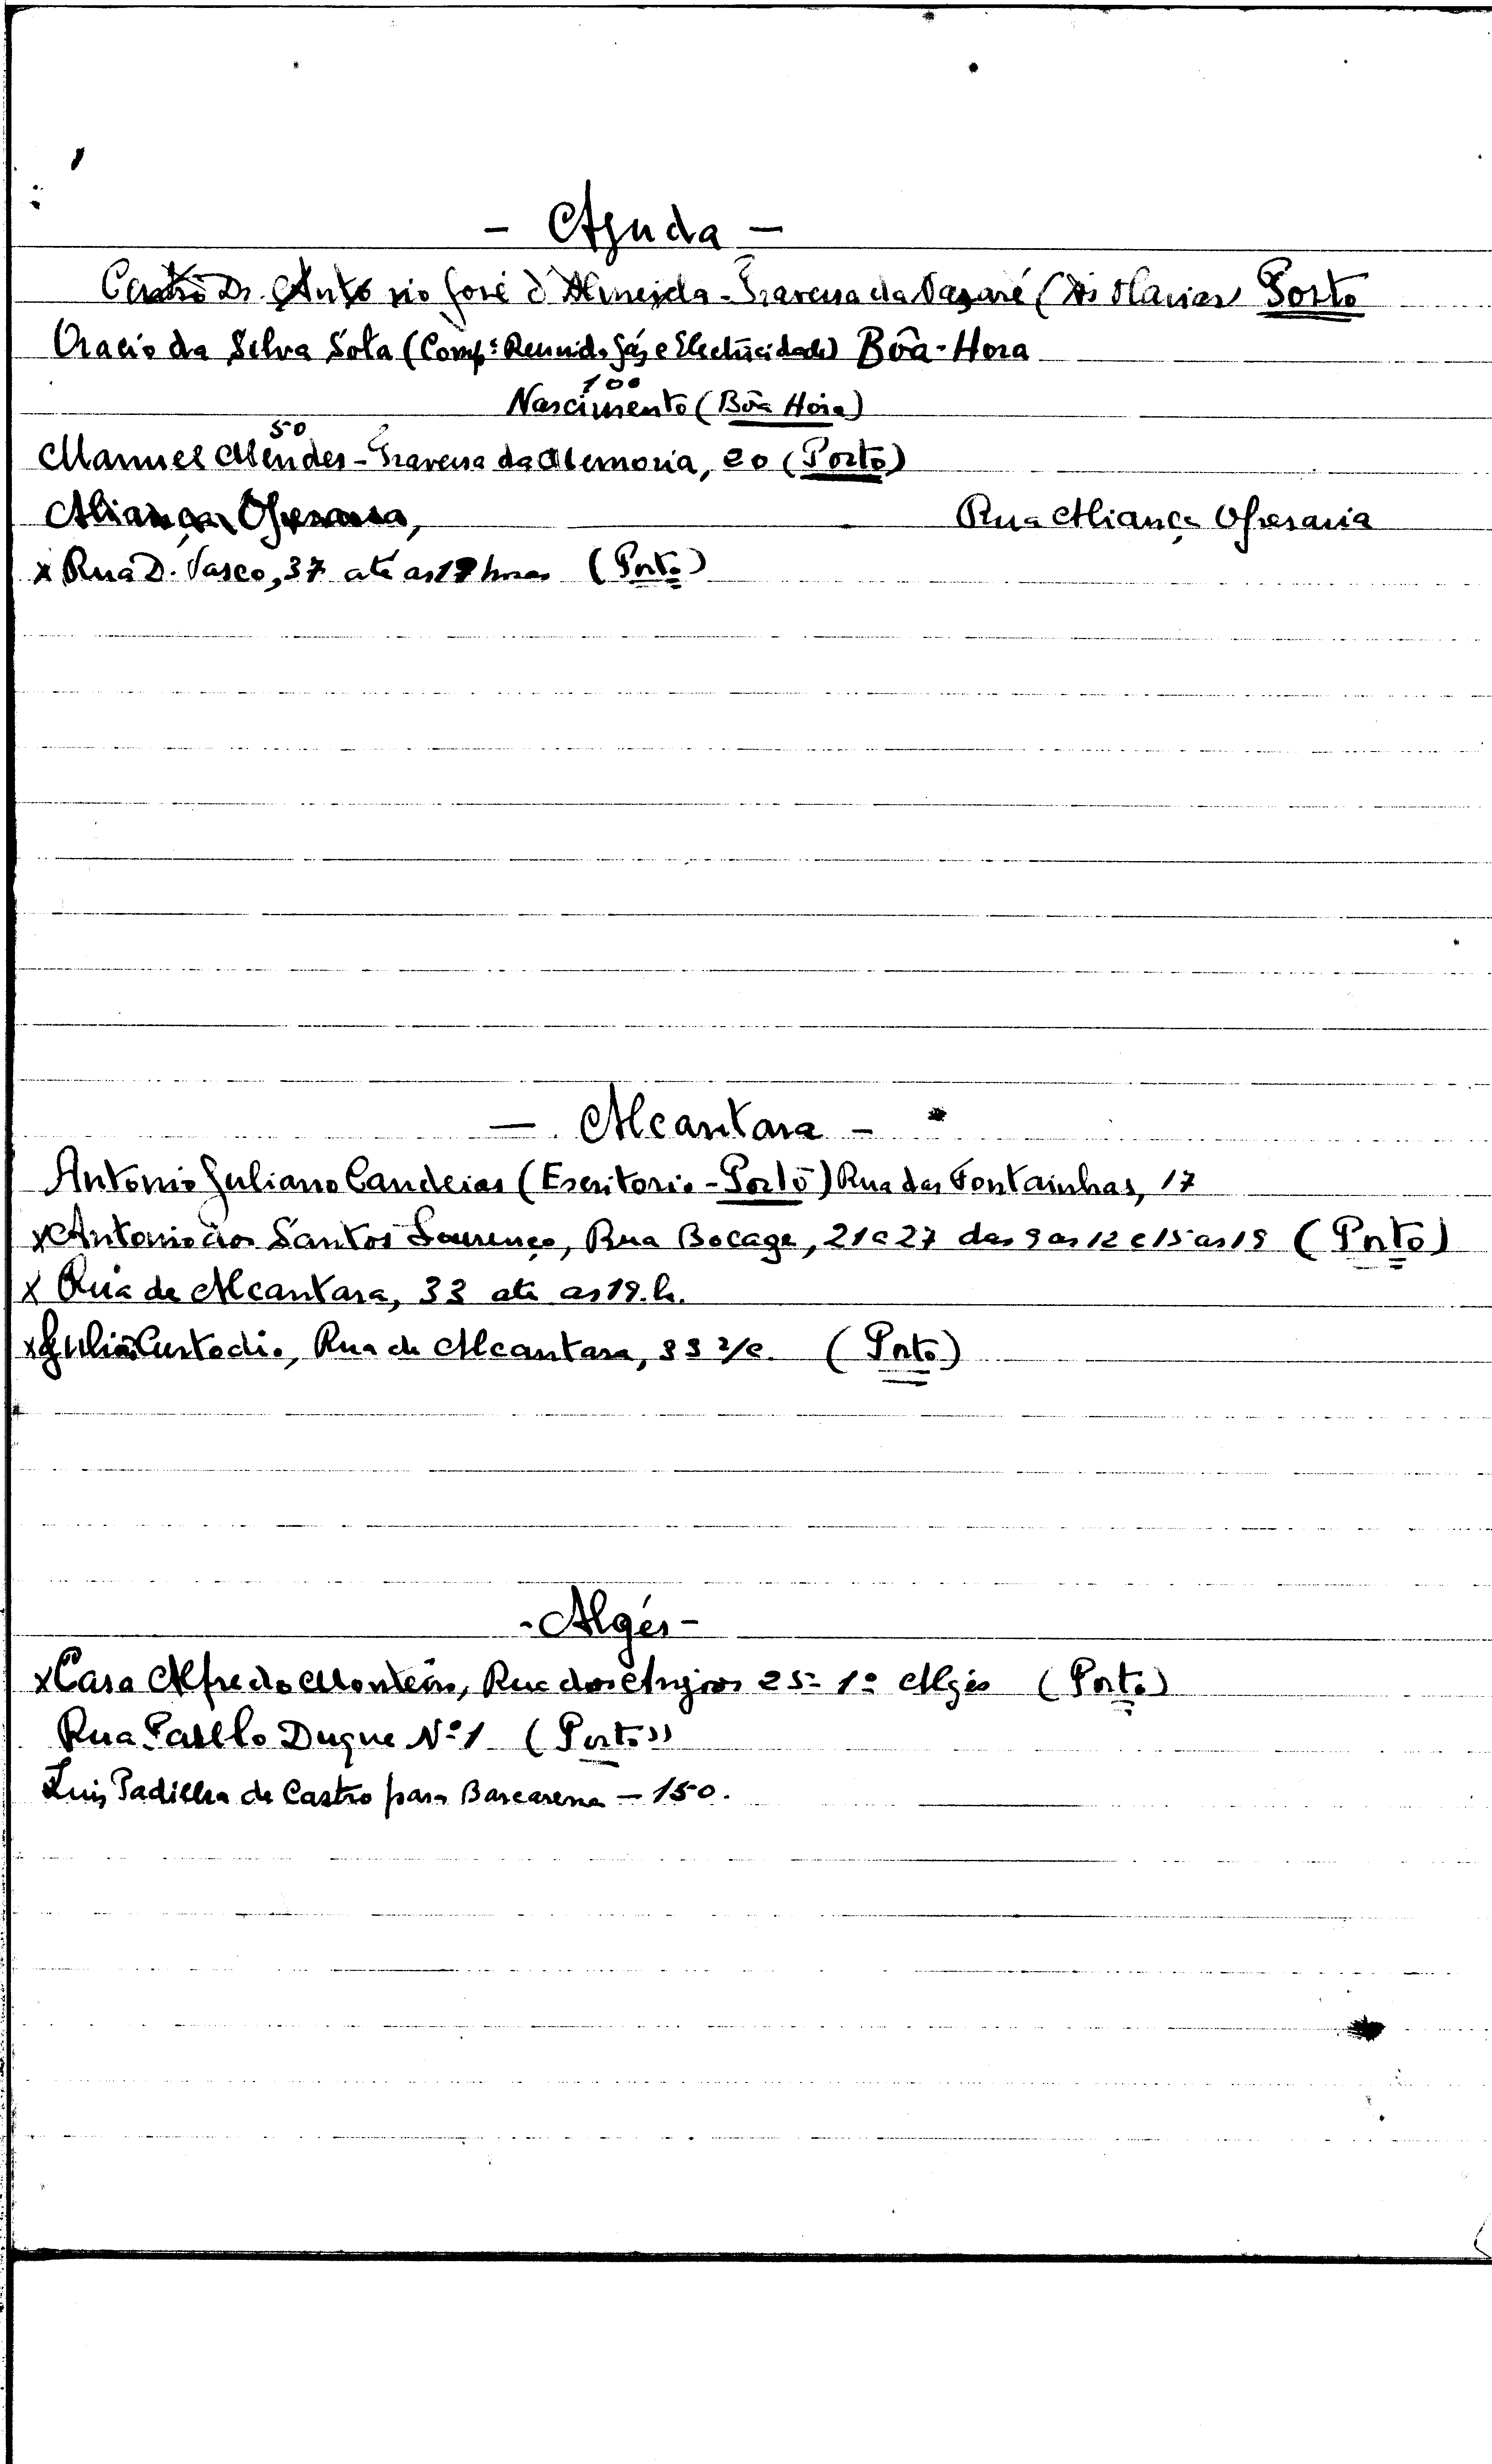 - Ajuda -
Centro Dr. António José d'Almeida - Travessa da Nazaré (Porto
Oracio da Silva Sota (Comp.ª Reunid. Gás e Electricidade) Bôa-Hora
100
Nascimento (Bôa Hora)
50
Manuel Mendes - Travessa da Memoria, 20 (Porto)
Aliança Operaria, Rua Aliança Operaria
x Rua D. Vasco, 37 até as 19 horas (Porto)
- Alcantara -
Antonio Juliano Candeias (Escritorio - Porto) Rua das Fontainhas, 17
x Antonio dos Santos Lourenço, Rua Bocage, 21 a 27 das 9 as 12 e 15 as 19 (Porto)
x Rua de Alcantara, 33 até as 19.h.
x Julio Custodio, Rua de Alcantara, 33 r/c. (Porto)
- Algés -
x Casa Alfredo Monteiro, Rua dos Anjos 25 - 1º Algés (Porto)
Rua Duque Nº 1 (Porto)
Luis Padilha de Castro para Barcarena - 150.